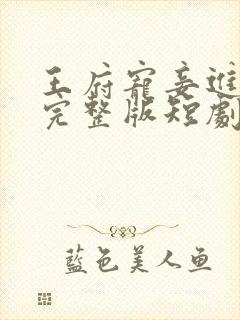 王府寵妾進
完整版短劇
藍色美人鱼